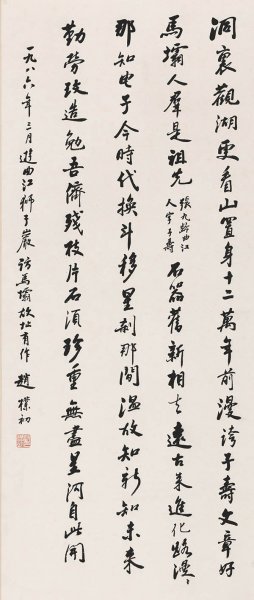 洞裏觀湖更看山置身十二萬年前漫誇子壽文章好
馬壩人羣是祖先張九齡曲江人字子壽石器舊新相去遠古来進化路漫〻
那知电子今時代換斗移星剎那間温故知新知未来
勤勞改造勉吾儕殘枝片石須珍重無盡星河自此開
一九八六年三月遊曲江獅子巖訪馬壩故址有作 趙樸初